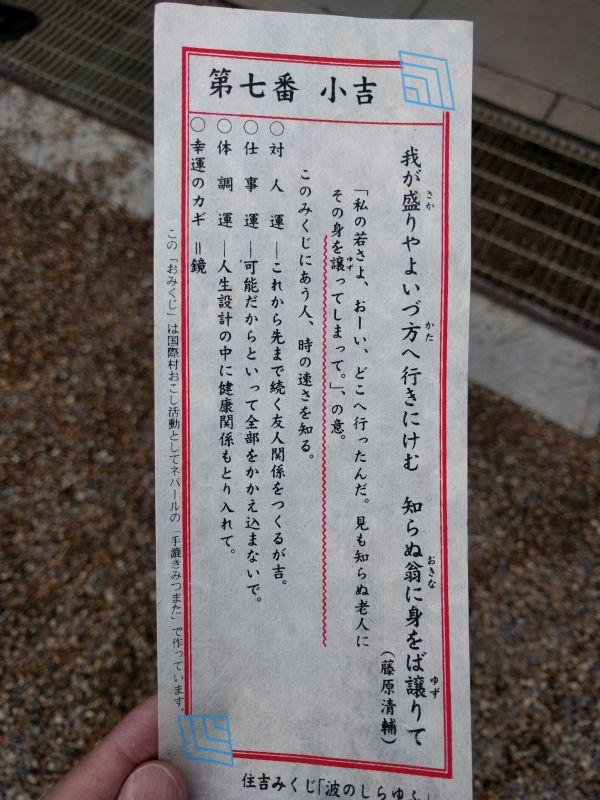 第七番 小吉
我が盛りやよいづ方へ行きにけむ 知らぬ翁に身をば譲りて
さか
かた
おきな
ゆず
(藤原清輔)
「私の若さよ、おーい、どこへ行ったんだ。見も知らぬ老人に
その身を譲ってしまって。」、の意。
ゆず
このみくじにあう人、時の速さを知る。
○対人運―これから先まで続く友人関係をつくるが吉。
○仕事運―可能だからといって全部をかかえ込まないで。
○体調運―人生設計の中に健康関係もとり入れて。
○幸運のカギ=鏡
この「おみくじ」は国際村おこし活動としてネパールの「手漉きみつまた」で作っています。
住吉みくじ「波のしらゆふ」